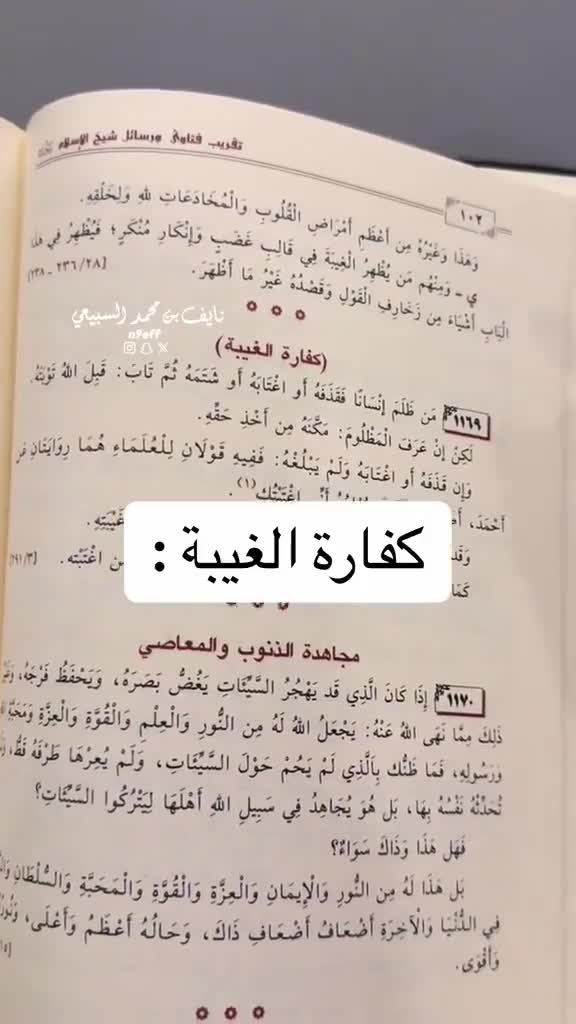 تقريب فتاوى ورسائل شيخ الإسلام
١٠٢
وَهَذَا وَغَيْرُهُ مِن أَعْظَمِ أَمْرَاضِ الْقُلُوبِ وَالْمُخَادَعَاتِ لِلهِ وَلِخَلْقِهِ.
ي - وَمِنْهُم مَن يُظْهِرُ الْغِيبَةَ فِي قَالَبِ غَضَبٍ وَإِنْكَارِ مُنْكَرٍ؛ فَيُظْهِرُ فِي هَذَا
الْبَابِ أَشْيَاءَ مِن زَخَارِفِ الْقَوْلِ وَقَصْدُهُ غَيْرُ مَا أَظْهَرَ. [٢٨/ ٢٣٦ - ٢٣٨]
نايف بن محمد السبيعي
n9off
(كفارة الغيبة)
١١٦٩ مَن ظَلَمَ إِنْسَانًا فَقَذَفَهُ أَو اغْتَابَهُ أَو شَتَمَهُ ثُمَّ تَابَ: قَبِلَ اللهُ تَوْبَتَهُ.
لَكِنْ إِنْ عَرَفَ الْمَظْلُومَ: مَكَّنَهُ مِن أَخْذِ حَقِّهِ.
وَإِن قَذَفَهُ أَو اغْتَابَهُ وَلَمْ يَبْلُغْهُ: فَفِيهِ قَوْلَانِ لِلْعُلَمَاءِ هُمَا رِوَايَتَانِ عَن
أَحْمَدَ، اغْتَبْتُك(١).
وَقَد غِيْبَتِهِ.
كَمَا مَن اغْتَبْته. [٢٩١/٣]
كفارة الغيبة :
مجاهدة الذنوب والمعاصي
١١٧٠ إِذَا كَانَ الَّذِي قَد يَهْجُرُ السَّيِّئَاتِ يَغُضُّ بَصَرَهُ، وَيَحْفَظُ فَرْجَهُ،
ذَلِكَ مِمَّا نَهَى اللهُ عَنْهُ: يَجْعَلُ اللهُ لَهُ مِن النُّورِ وَالْعِلْمِ وَالْقُوَّةِ وَالْعِزَّةِ وَمَحَبَّةِ
وَرَسُولِهِ، فَمَا ظَنُّك بِاَلَّذِي لَمْ يَحُمْ حَوْلَ السَّيِّئَاتِ، وَلَمْ يُعِرْهَا طَرْفَهُ قَطُّ،
تُحَدِّثْهُ نَفْسُهُ بِهَا، بَل هُوَ يُجَاهِدُ فِي سَبِيلِ اللهِ أَهْلَهَا لِيَتْرُكُوا السَّيِّئَاتِ؟
فَهَل هَذَا وَذَاكَ سَوَاءٌ؟
بَل هَذَا لَهُ مِن النُّورِ وَالْإِيمَانِ وَالْعِزَّةِ وَالْقُوَّةِ وَالْمَحَبَّةِ وَالسُّلْطَانِ
فِي الدُّنْيَا وَالْآخِرَةِ أَضْعَافُ أَضْعَافِ ذَاكَ، وَحَالُهُ أَعْظَمُ وَأَعْلَى،
وَأَقْوَى.